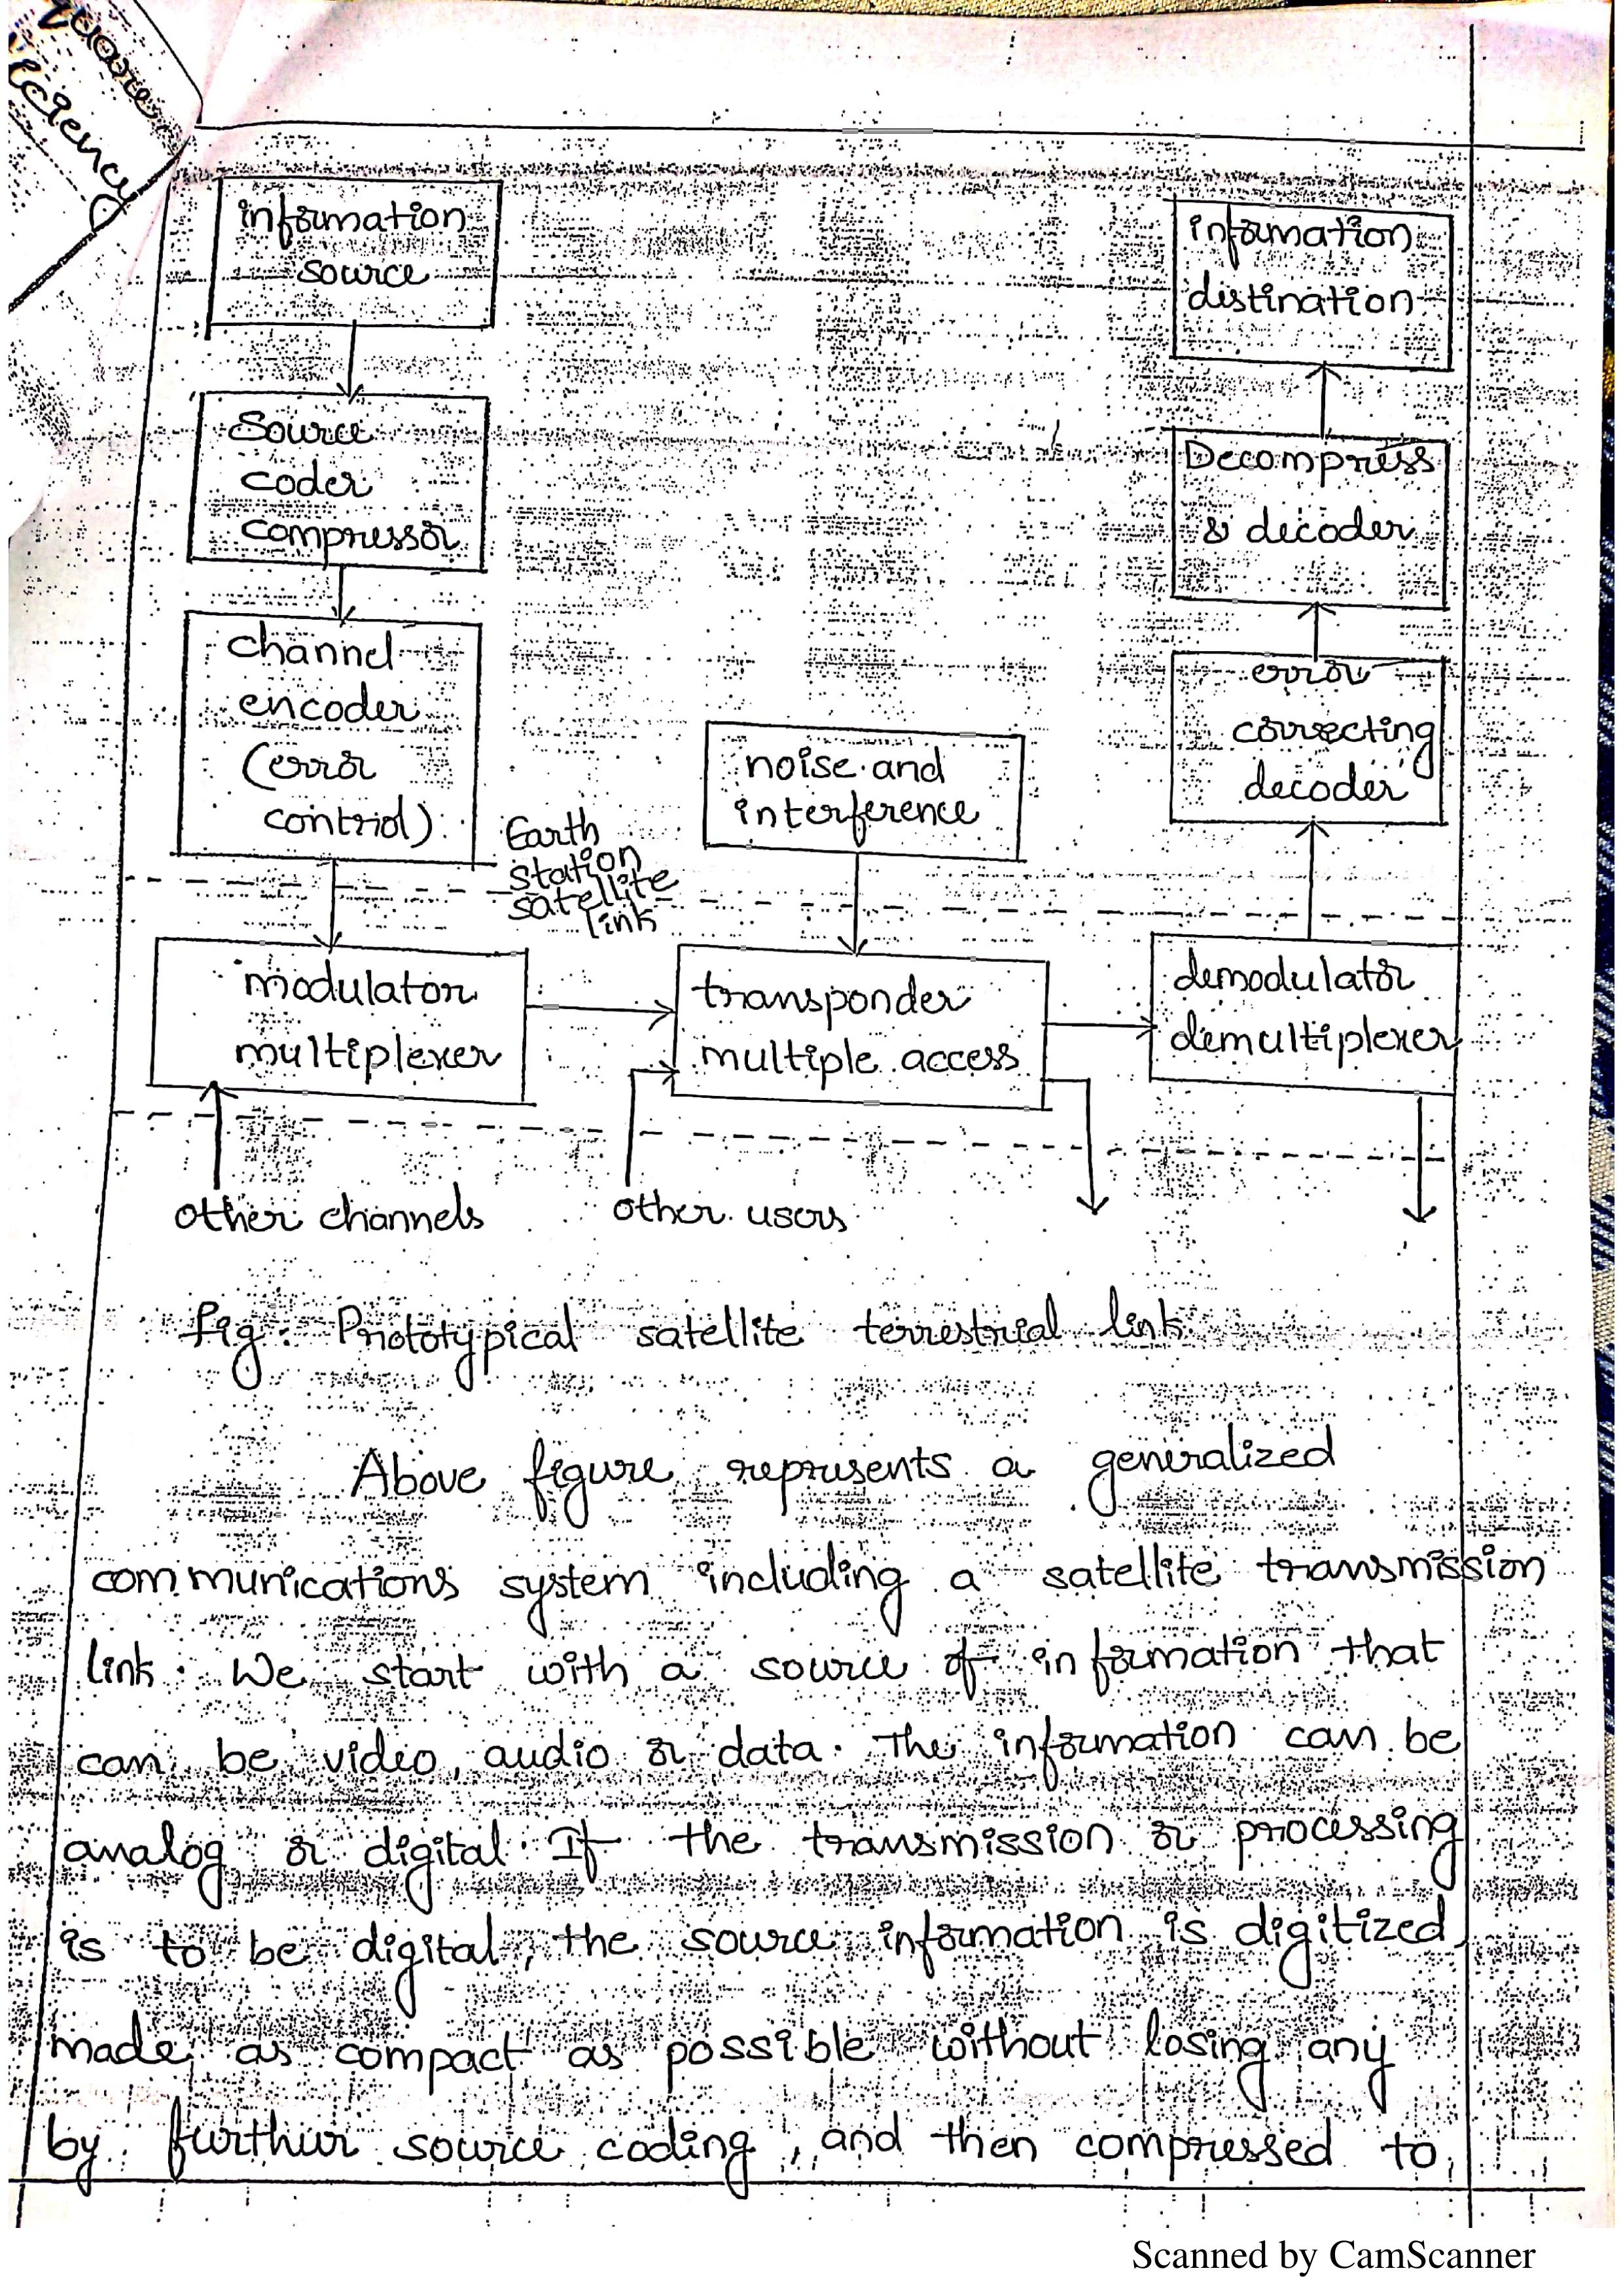 information
source
Source
coder
compressor
channel
encoder
(error
control)
Earth
station
satellite
link
noise and
interference
information
distination
Decompress
& decoder
error
correcting
decoder
modulator
multiplexer
transponder
multiple access
demodulator
demultiplexer
other channels
other users
fig: Prototypical satellite terrestrial link
Above figure represents a generalized
communications system including a satellite transmission
link. We start with a source of information that
can be video, audio or data. The information can be
analog or digital. If the transmission or processing
is to be digital, the source information is digitized,
made as compact as possible without losing any
by furthur source coding, and then compressed to
Scanned by CamScanner